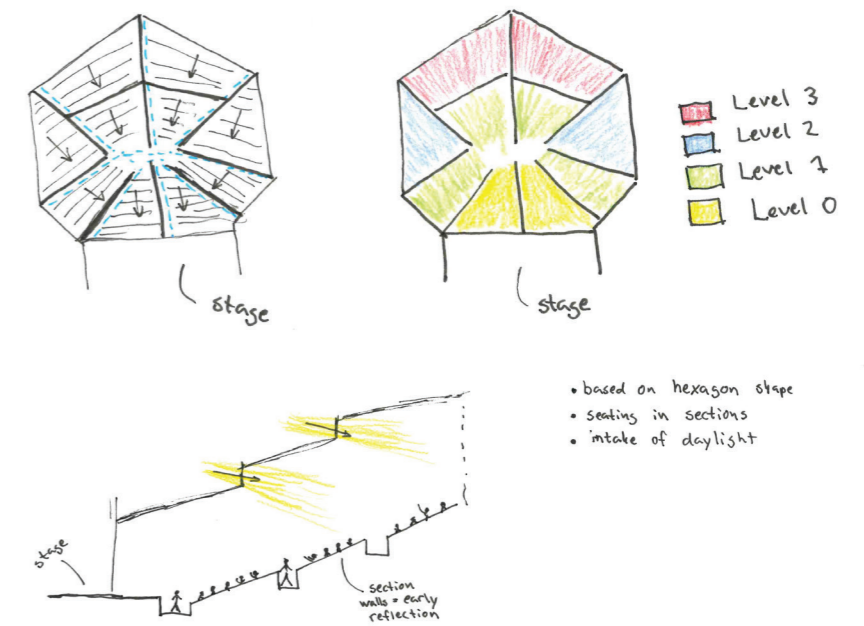 Level 3
Level 2
Level 1
Level 0
stage
stage
• based on hexagon shape
• seating in sections
• intake of daylight
stage
section
walls = early
reflection